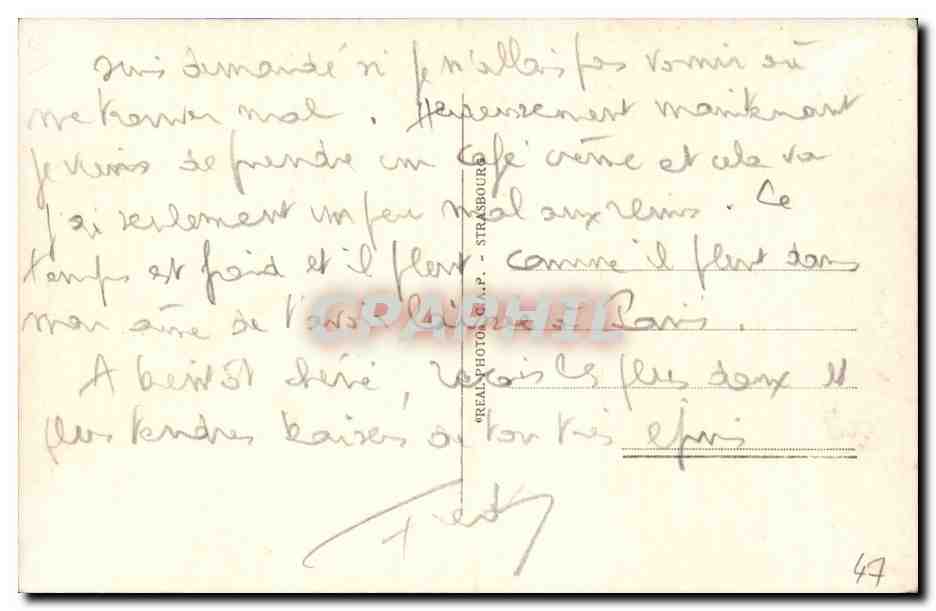 suis demandé si je n'allais pas vomir ou
me trouver mal. Heureusement maintenant
je viens de prendre un café crème et cela va
j'ai seulement un peu mal aux reins. Ce
temps est froid et il pleut comme il pleut dans
mon âme de t'avoir laissée à Paris.
A bientôt chéri, reçois les plus doux et
plus tendres baisers de ton très épris
Fredy
47
©REAL-PHOTOS C.A.P. - STRASBOURG
CPAPHIL